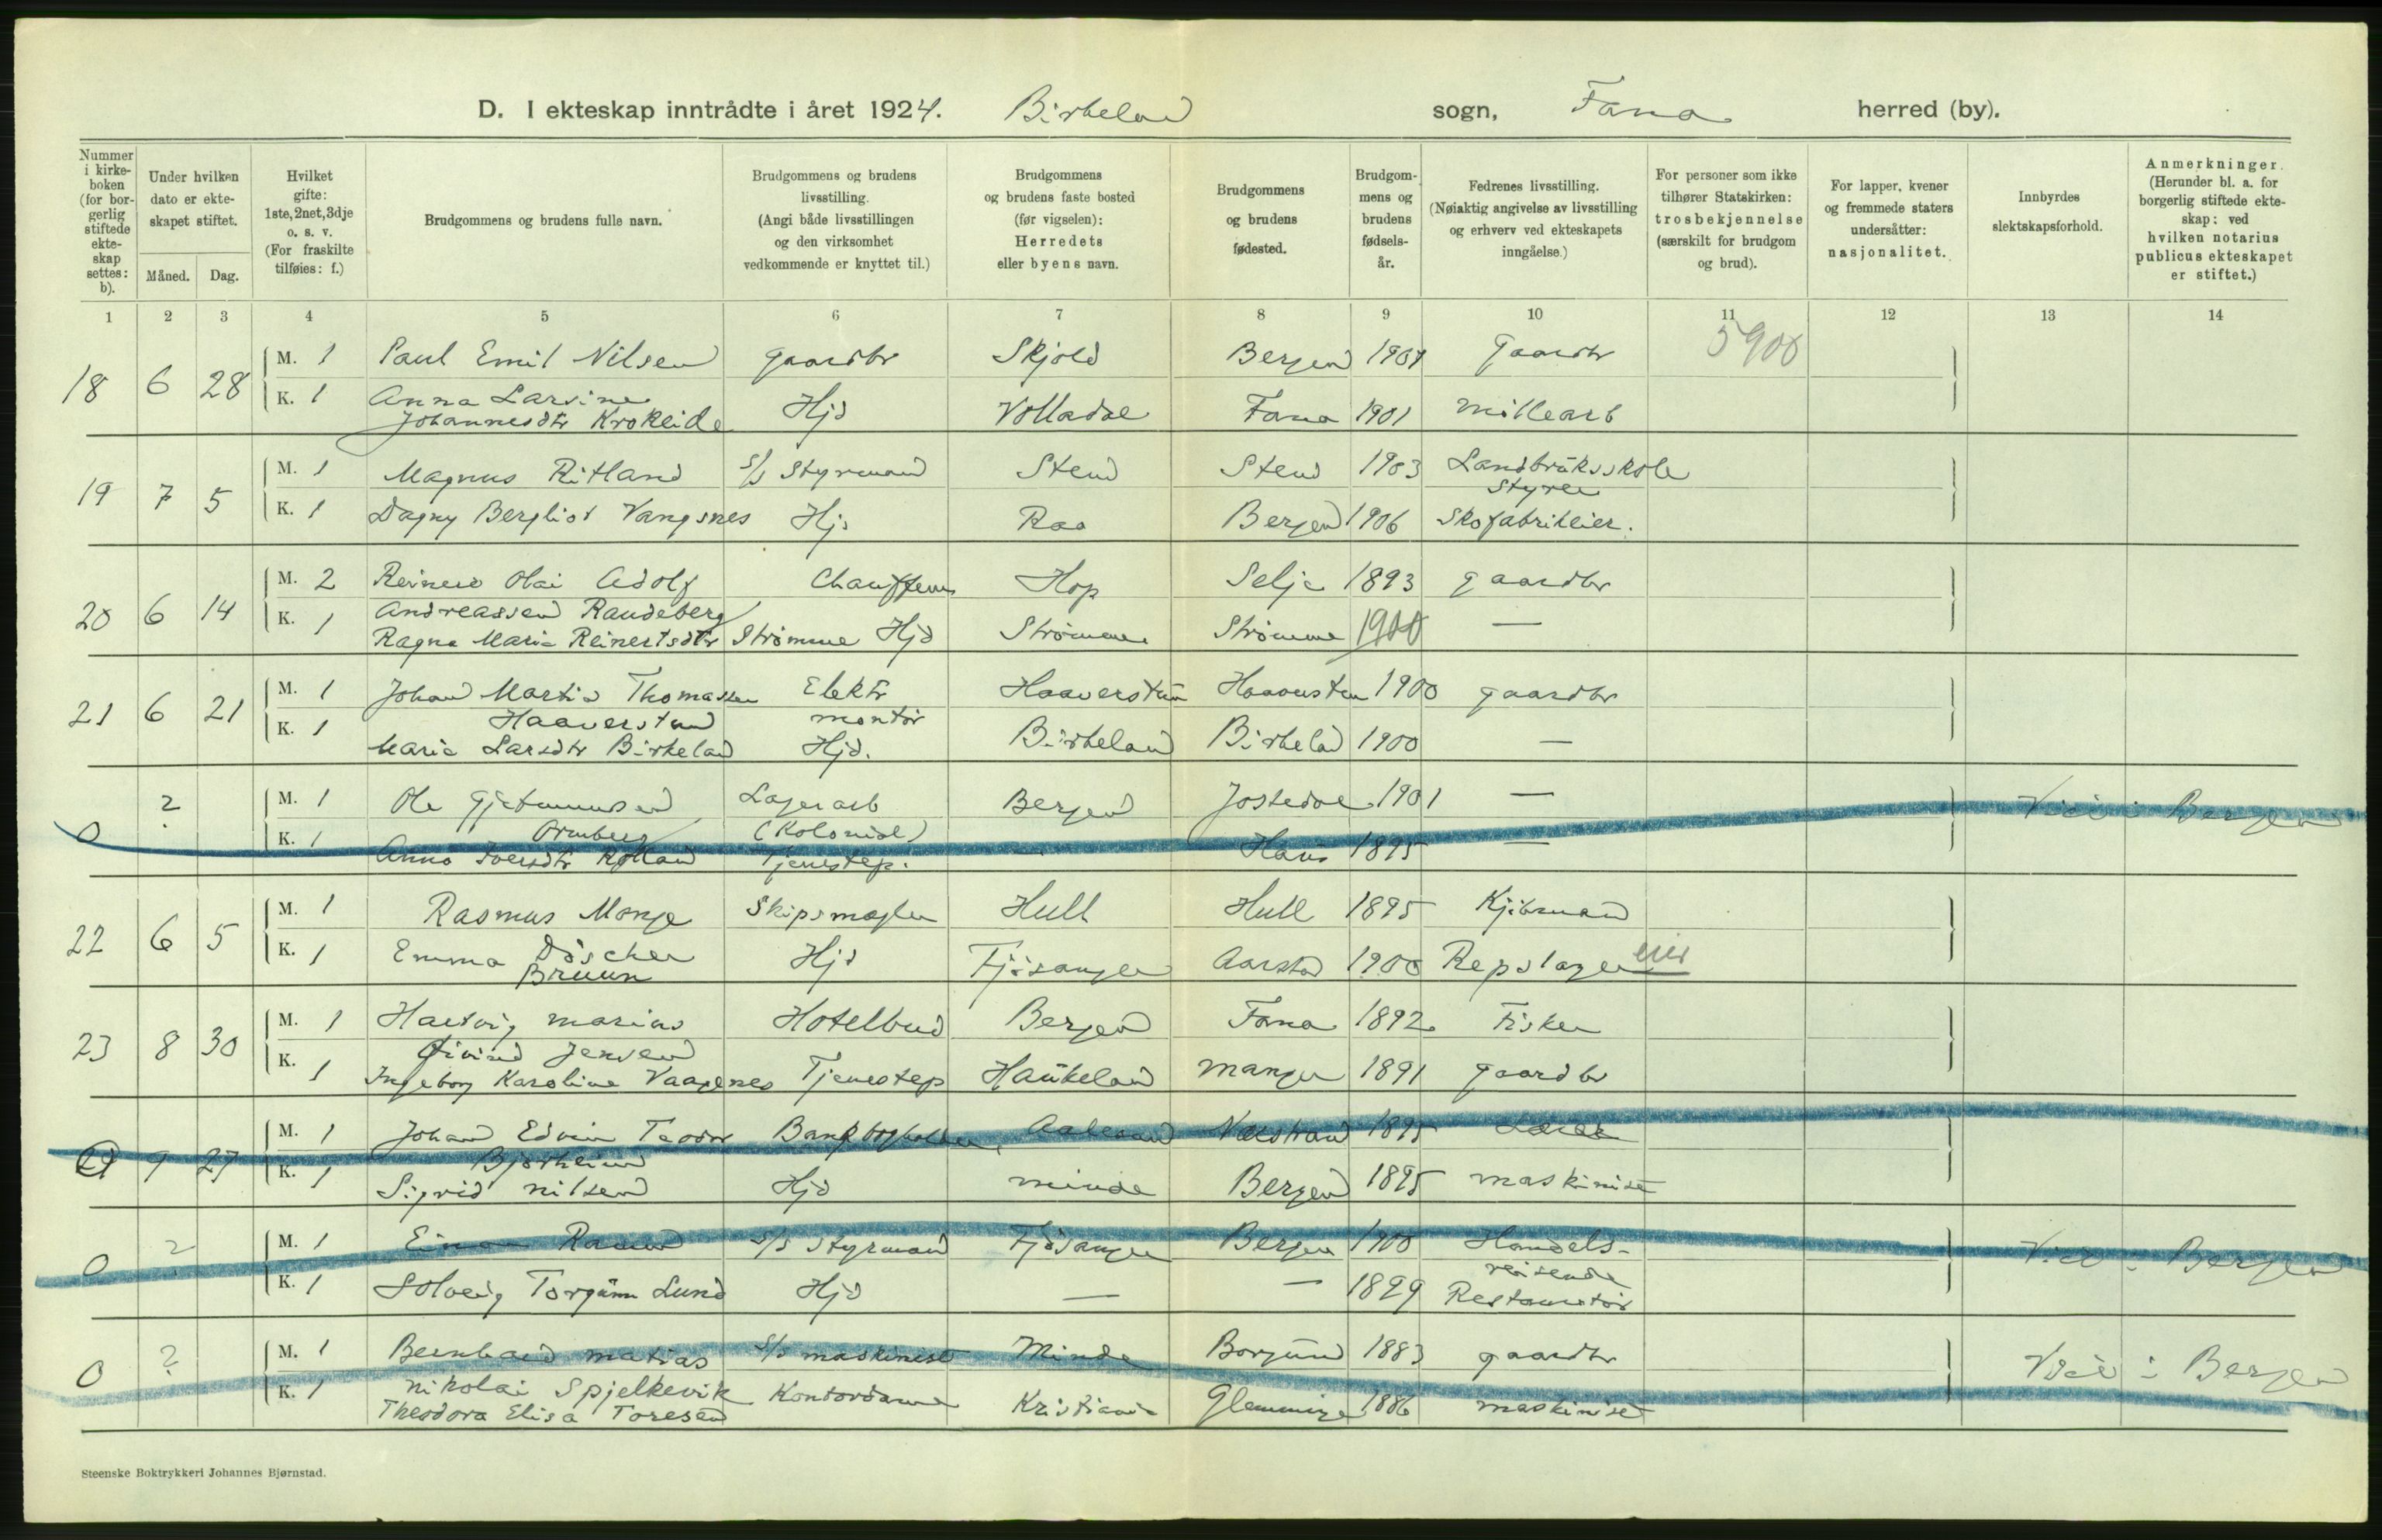 D. I ekteskap inntrådte i året 1924. Birkeland sogn, Fana herred (by).
Nummer i kirke-boken (for bor-gerlig stiftede ekte-skap settes: b).
Under hvilken dato er ekte-skapet stiftet.
Måned. Dag.
Hvilket gifte: 1ste, 2net, 3dje o. s. v. (For fraskilte tilføies: f.)
Brudgommens og brudens fulle navn.
Brudgommens og brudens livsstilling. (Angi både livsstillingen og den virksomhet vedkommende er knyttet til.)
Brudgommens og brudens faste bosted (før vigselen): Herredets eller byens navn.
Brudgommens og brudens fødested.
Brudgom-mens og brudens fødsels-år.
Fedrenes livsstilling. (Nøiaktig angivelse av livsstilling og erhverv ved ekteskapets inngåelse.)
For personer som ikke tilhører Statskirken: trosbekjennelse (særskilt for brudgom og brud).
For lapper, kvener og fremmede staters undersåtter: nasjonalitet.
Innbyrdes slektskapsforhold.
Anmerkninger. (Herunder bl. a. for borgerlig stiftede ekte-skap: ved hvilken notarius publicus ekteskapet er stiftet.)
1 2 3 4 5 6 7 8 9 10 11 12 13 14
18 6 28 M. 1 Paul Emil Nilsen gaardbr Skjold Bergen 1901 gaardbr 5900
K. 1 Anna Larsine
Johannesdtr Krokeide Hjd Volladal Fana 1901 millearb
19 7 5 M. 1 Magnus Ritland s/s Styrmand Stend Stend 1903 Landbruksskole
styrer
K. 1 Dagny Bergliot Vangsnes Hjd Raa Bergen 1906 Skofabrikeier.
20 6 14 M. 2 Reinert Olai Adolf Chauffeur Hop Selje 1893 gaardbr
K. 1 Andreassen Raudeberg
Ragna Marie Reinertsdtr Strømme Hjd Strømme Strømme 1900 —
21 6 21 M. 1 Johan Martin Thomassen Elektr Haaverstun Haaverstun 1900 gaardbr
K. 1 Haaverstund montør
Marie Larsdtr Birkeland Hjd. Birkeland Birkeland 1900 —
0 ? M. 1 Ole Gjertmundsen Lagerarb Bergen Jostedal 1901 — Viet i Bergen
K. 1 Ormberg (Kolonial)
Anna Iversdtr Rolland Tjenestep. — Haus 1895 —
22 6 5 M. 1 Rasmus Monge Skipsmægler Hull Hull 1895 Kjøbmand
K. 1 Emma Döscher
Bruun Hjd Fjøsanger Aarstad 1900 Repslagereier
23 8 30 M. 1 Hartvig Marius Hotelbud Bergen Fana 1892 Fisker
K. 1 Øivind Jensen
Ingeborg Karoline Vaagenes Tjenestep Haukeland Manger 1891 gaardbr
9 27 M. 1 Johan Edvin Teodor Bankbogholder Aalesund Nærstrand 1895 Lærer
K. 1 Bjørkheim
Sigrid Nilsen Hjd Minde Bergen 1895 maskinist
0 ? M. 1 Einar s/s styrmand Fjøsanger Bergen 1900 Handels- Viet i Bergen
reisende
K. 1 Solveig Torgunn Lund Hjd — — 1899 Restauratør
0 ? M. 1 Bernhard Matias s/s maskinist Minde Borgund 1883 gaardbr Viet i Bergen
K. 1 Nikolai Spjelkevik
Theodora Elisa Toresen Kontordame Kristiania Glemminge 1886 maskinist
Steenske Boktrykkeri Johannes Bjørnstad.